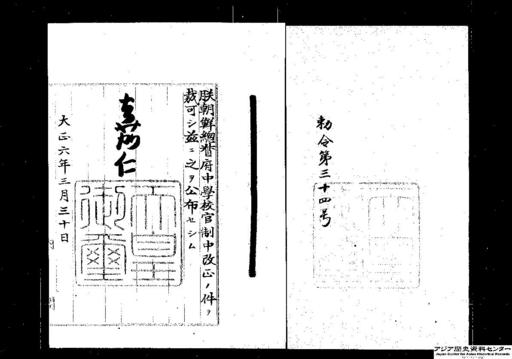 勅令第三十四号
朕朝鮮總督府中學校官制中改正ノ件ヲ
裁可シ茲ニ之ヲ公布セシム
嘉仁
天皇御璽
大正六年三月三十日
アジア歴史資料センター
Japan Center for Asian Historical Records